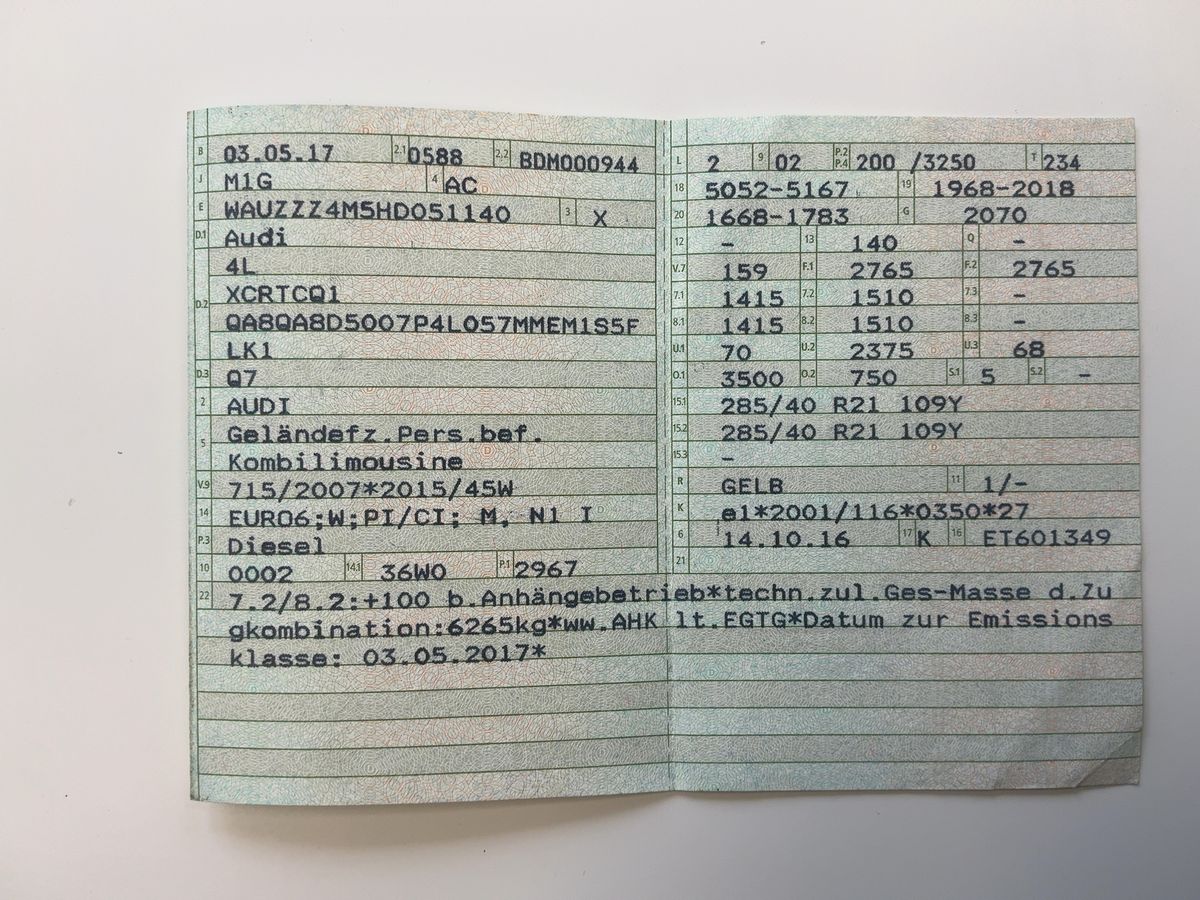 B 03.05.17 2.1 0588 2.2 BDM000944
J M1G 4 AC
E WAUZZZ4M5HD051140 3 X
D.1 Audi
4L
D.2 XCRTCQ1
QA8QA8D5007P4L057MMEM1S5F
LK1
D.3 Q7
2 AUDI
5 Geländefz.Pers.bef.
Kombilimousine
V.9 715/2007*2015/45W
14 EURO6;W;PI/CI; M, N1 I
P.3 Diesel
10 0002 14.1 36W0 P.1 2967
L 2 9 02 P.2 P.4 200 /3250 T 234
18 5052-5167 19 1968-2018
20 1668-1783 G 2070
12 - 13 140 Q -
V.7 159 F.1 2765 F.2 2765
7.1 1415 7.2 1510 7.3 -
8.1 1415 8.2 1510 8.3 -
U.1 70 U.2 2375 U.3 68
O.1 3500 O.2 750 S.1 5 S.2 -
15.1 285/40 R21 109Y
15.2 285/40 R21 109Y
15.3 -
R GELB 11 1/-
K e1*2001/116*0350*27
6 14.10.16 17 K 16 ET601349
21
22 7.2/8.2:+100 b.Anhängebetrieb*techn.zul.Ges-Masse d.Zu
gkombination:6265kg*ww.AHK lt.EGTG*Datum zur Emissions
klasse: 03.05.2017*